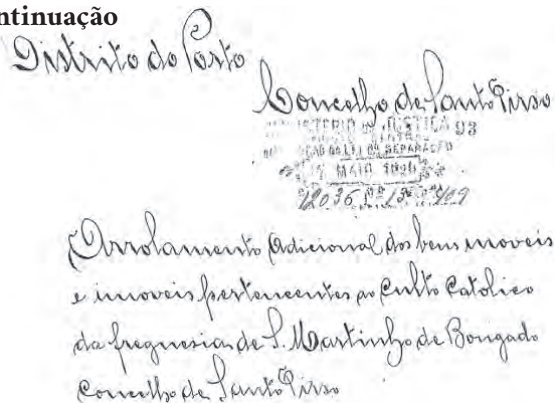 ntinuação
Distrito do Porto
Concelho de Santo Tirso
MINISTERIO DA JUSTIÇA 93
LEI DA SEPARAÇÃO
MAIO
12036 409
Arrolamento adicional dos bens moveis
e imoveis pertencentes ao Culto Catolico
da freguesia de S. Martinho de Bougado
Concelho de Santo Tirso